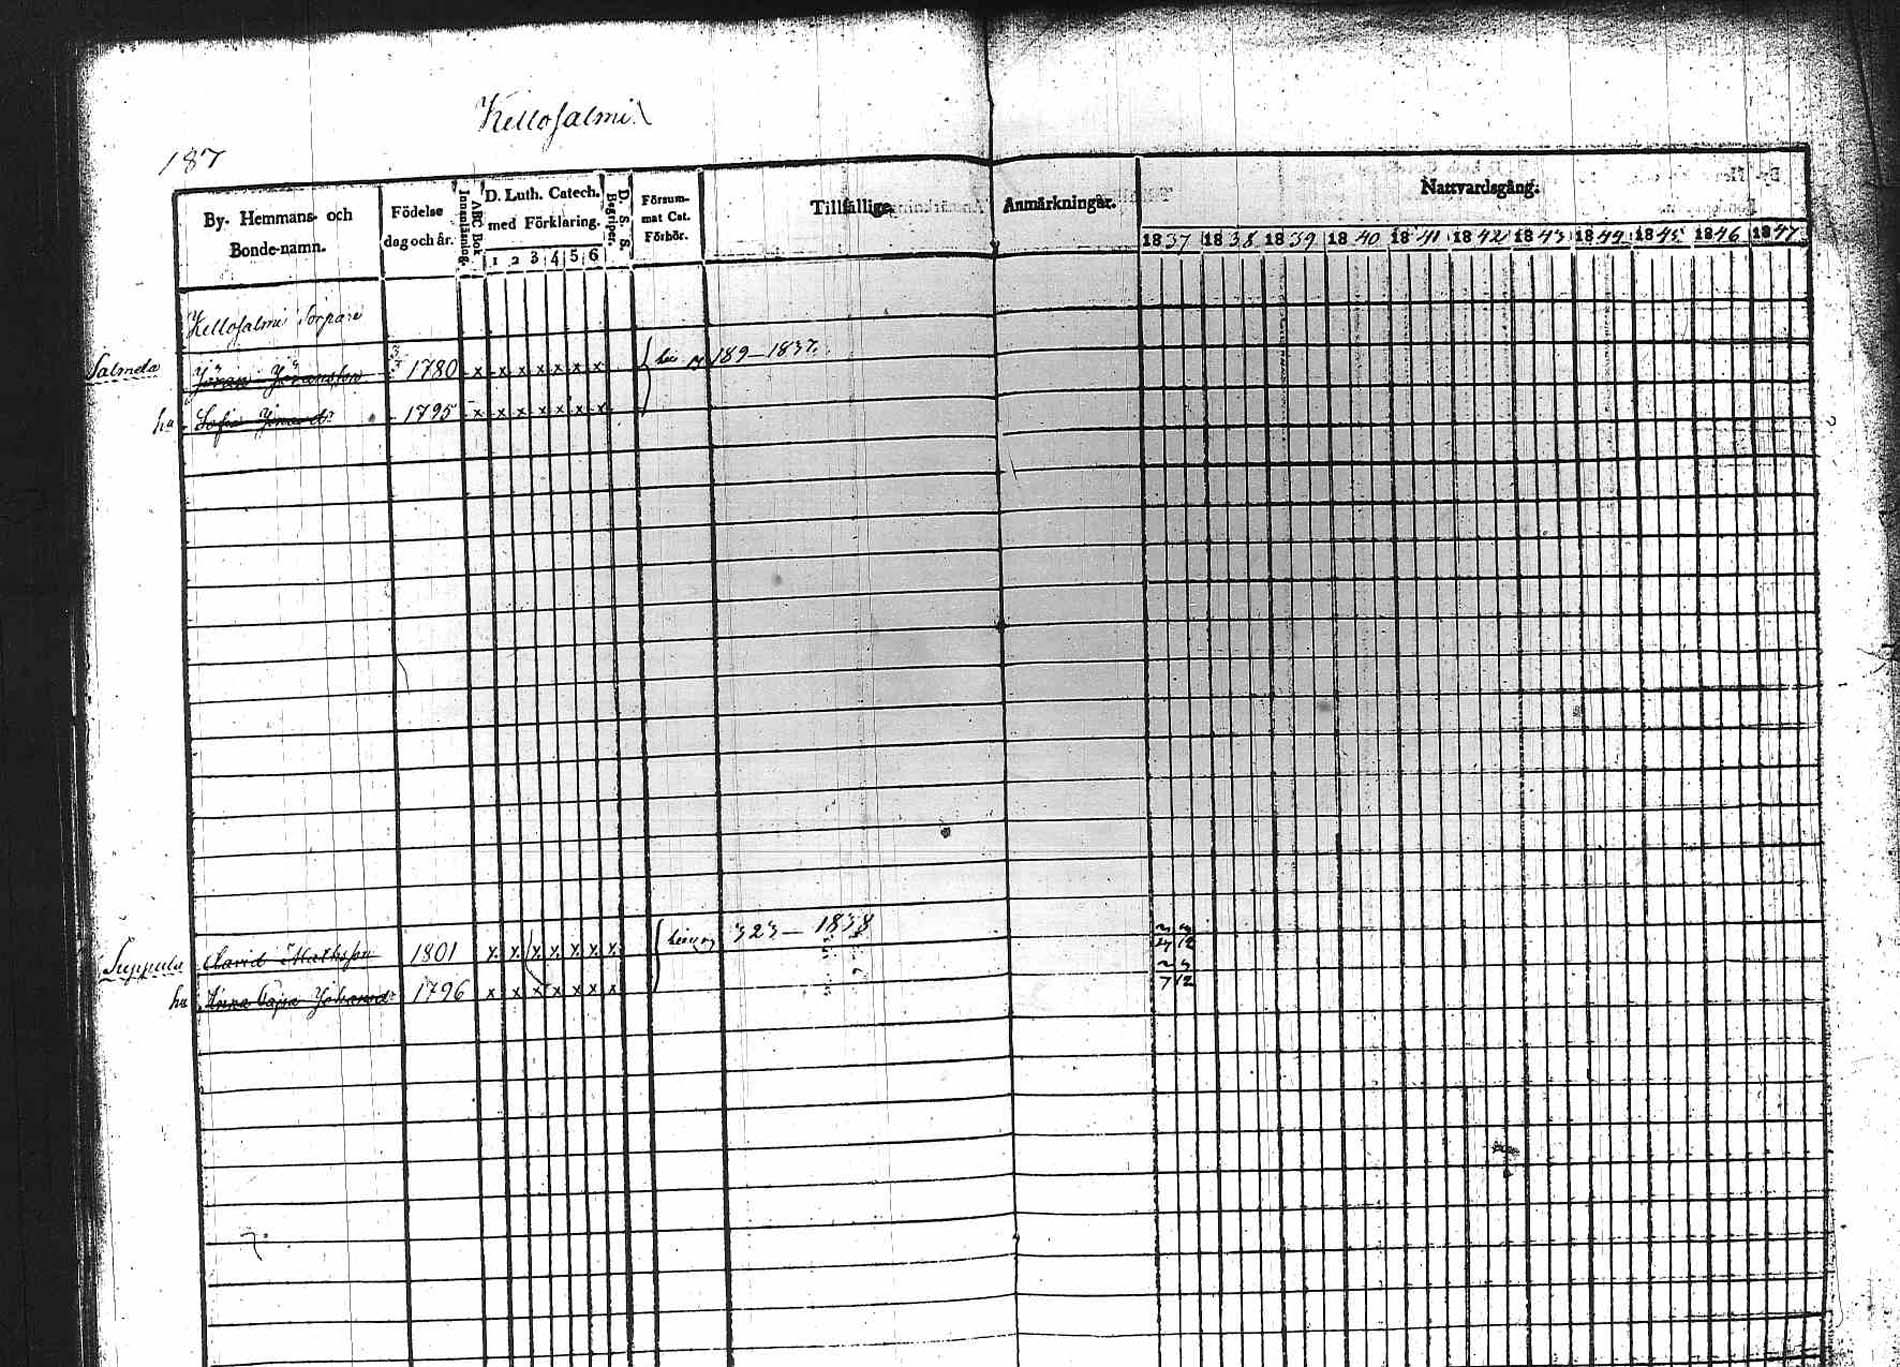 Kellosalmi
187
By- Hemmans- och Bonde-namn.
Födelse dag och år.
ABC Bok Innanläsning.
D. Luth. Catech. med Förklaring.
1 2 3 4 5 6
D. S. S. Begriper.
Försum-mat Cat. Förhör.
Tillfällige.
Anmärkningar.
Nattvardsgång.
1837 1838 1839 1840 1841 1842 1843 1844 1845 1846 1847
Kellosalmi Torpare
Salmela Jöran Jöransson 1780 x x x x x x x 189–1837.
hu Sofia 1795 x x x x x x x
Suppula David Mathsson 1801 x x x x x x x 323–1838
hu Anna Caisa Johansdr 1796 x x x x x x x 7 12